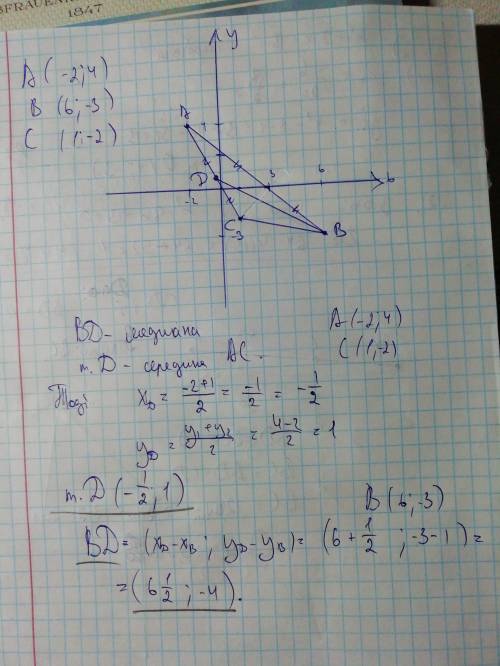 BFRAUEN
1847
A (-2; 4)
B (6; -3)
C (1; -2)
y
A
D
-2
3
6
C
-3
B
BD - медиана
т. D - середина AC.
A (-2; 4)
C (1; -2)
Тоді
x_D = \frac{-2+1}{2} = \frac{-1}{2} = -\frac{1}{2}
y_D = \frac{y_1+y_2}{2} = \frac{4-2}{2} = 1
т. D (-\frac{1}{2}; 1)
B (6; -3)
BD = (x_D - x_B; y_D - y_B) = (6 + \frac{1}{2}; -3-1) =
= (6\frac{1}{2}; -4).